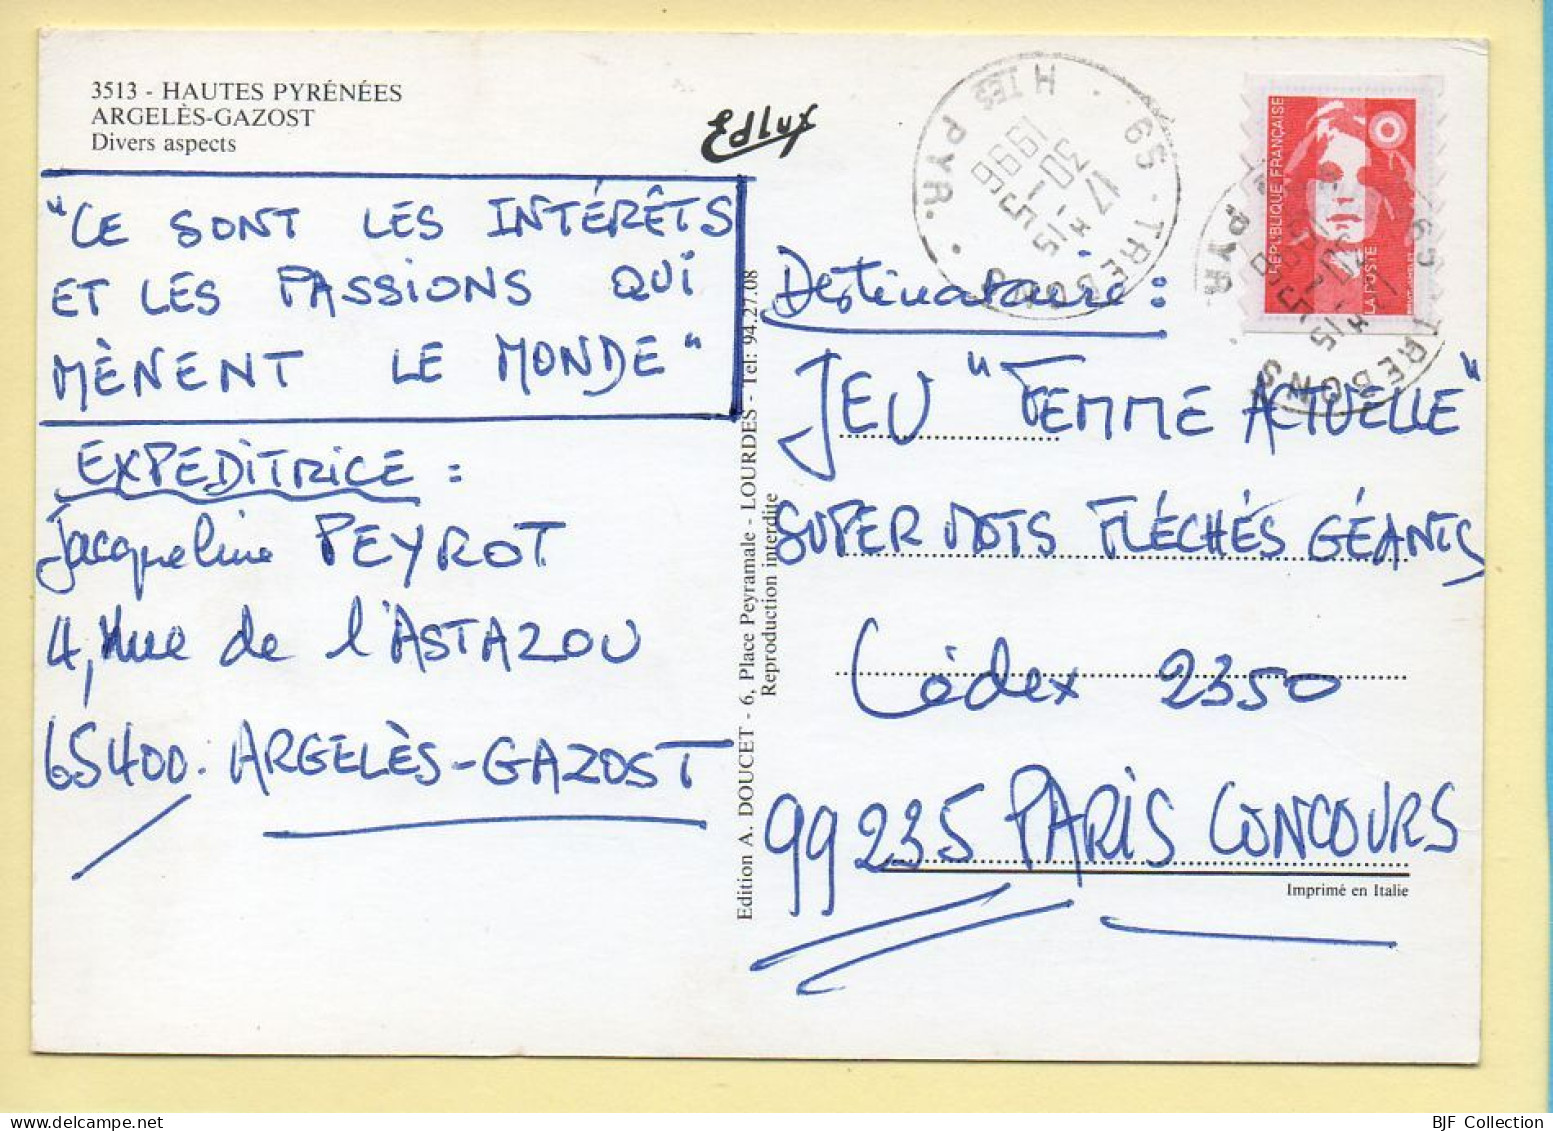 3513 - HAUTES PYRÉNÉES
ARGELÈS-GAZOST
Divers aspects
Edlux
"CE SONT LES INTÉRÊTS
ET LES PASSIONS QUI
MÈNENT LE MONDE"
EXPEDITRICE :
Jacqueline PEYROT
4, rue de l'ASTAZOU
65400. ARGELÈS-GAZOST
Edition A. DOUCET - 6, Place Peyramale - LOURDES - Tel: 94.27.08
Reproduction interdite
65 - TREBONS
HTES PYR.
17 H 15
30-5
1996
RÉPUBLIQUE FRANÇAISE
LA POSTE
65 TREBONS
PYR
Destinataire :
JEU "FEMME ACTUELLE"
SUPER MOTS FLÉCHÉS GÉANTS
Cédex 2350
99235 PARIS CONCOURS
Imprimé en Italie
BJF Collection